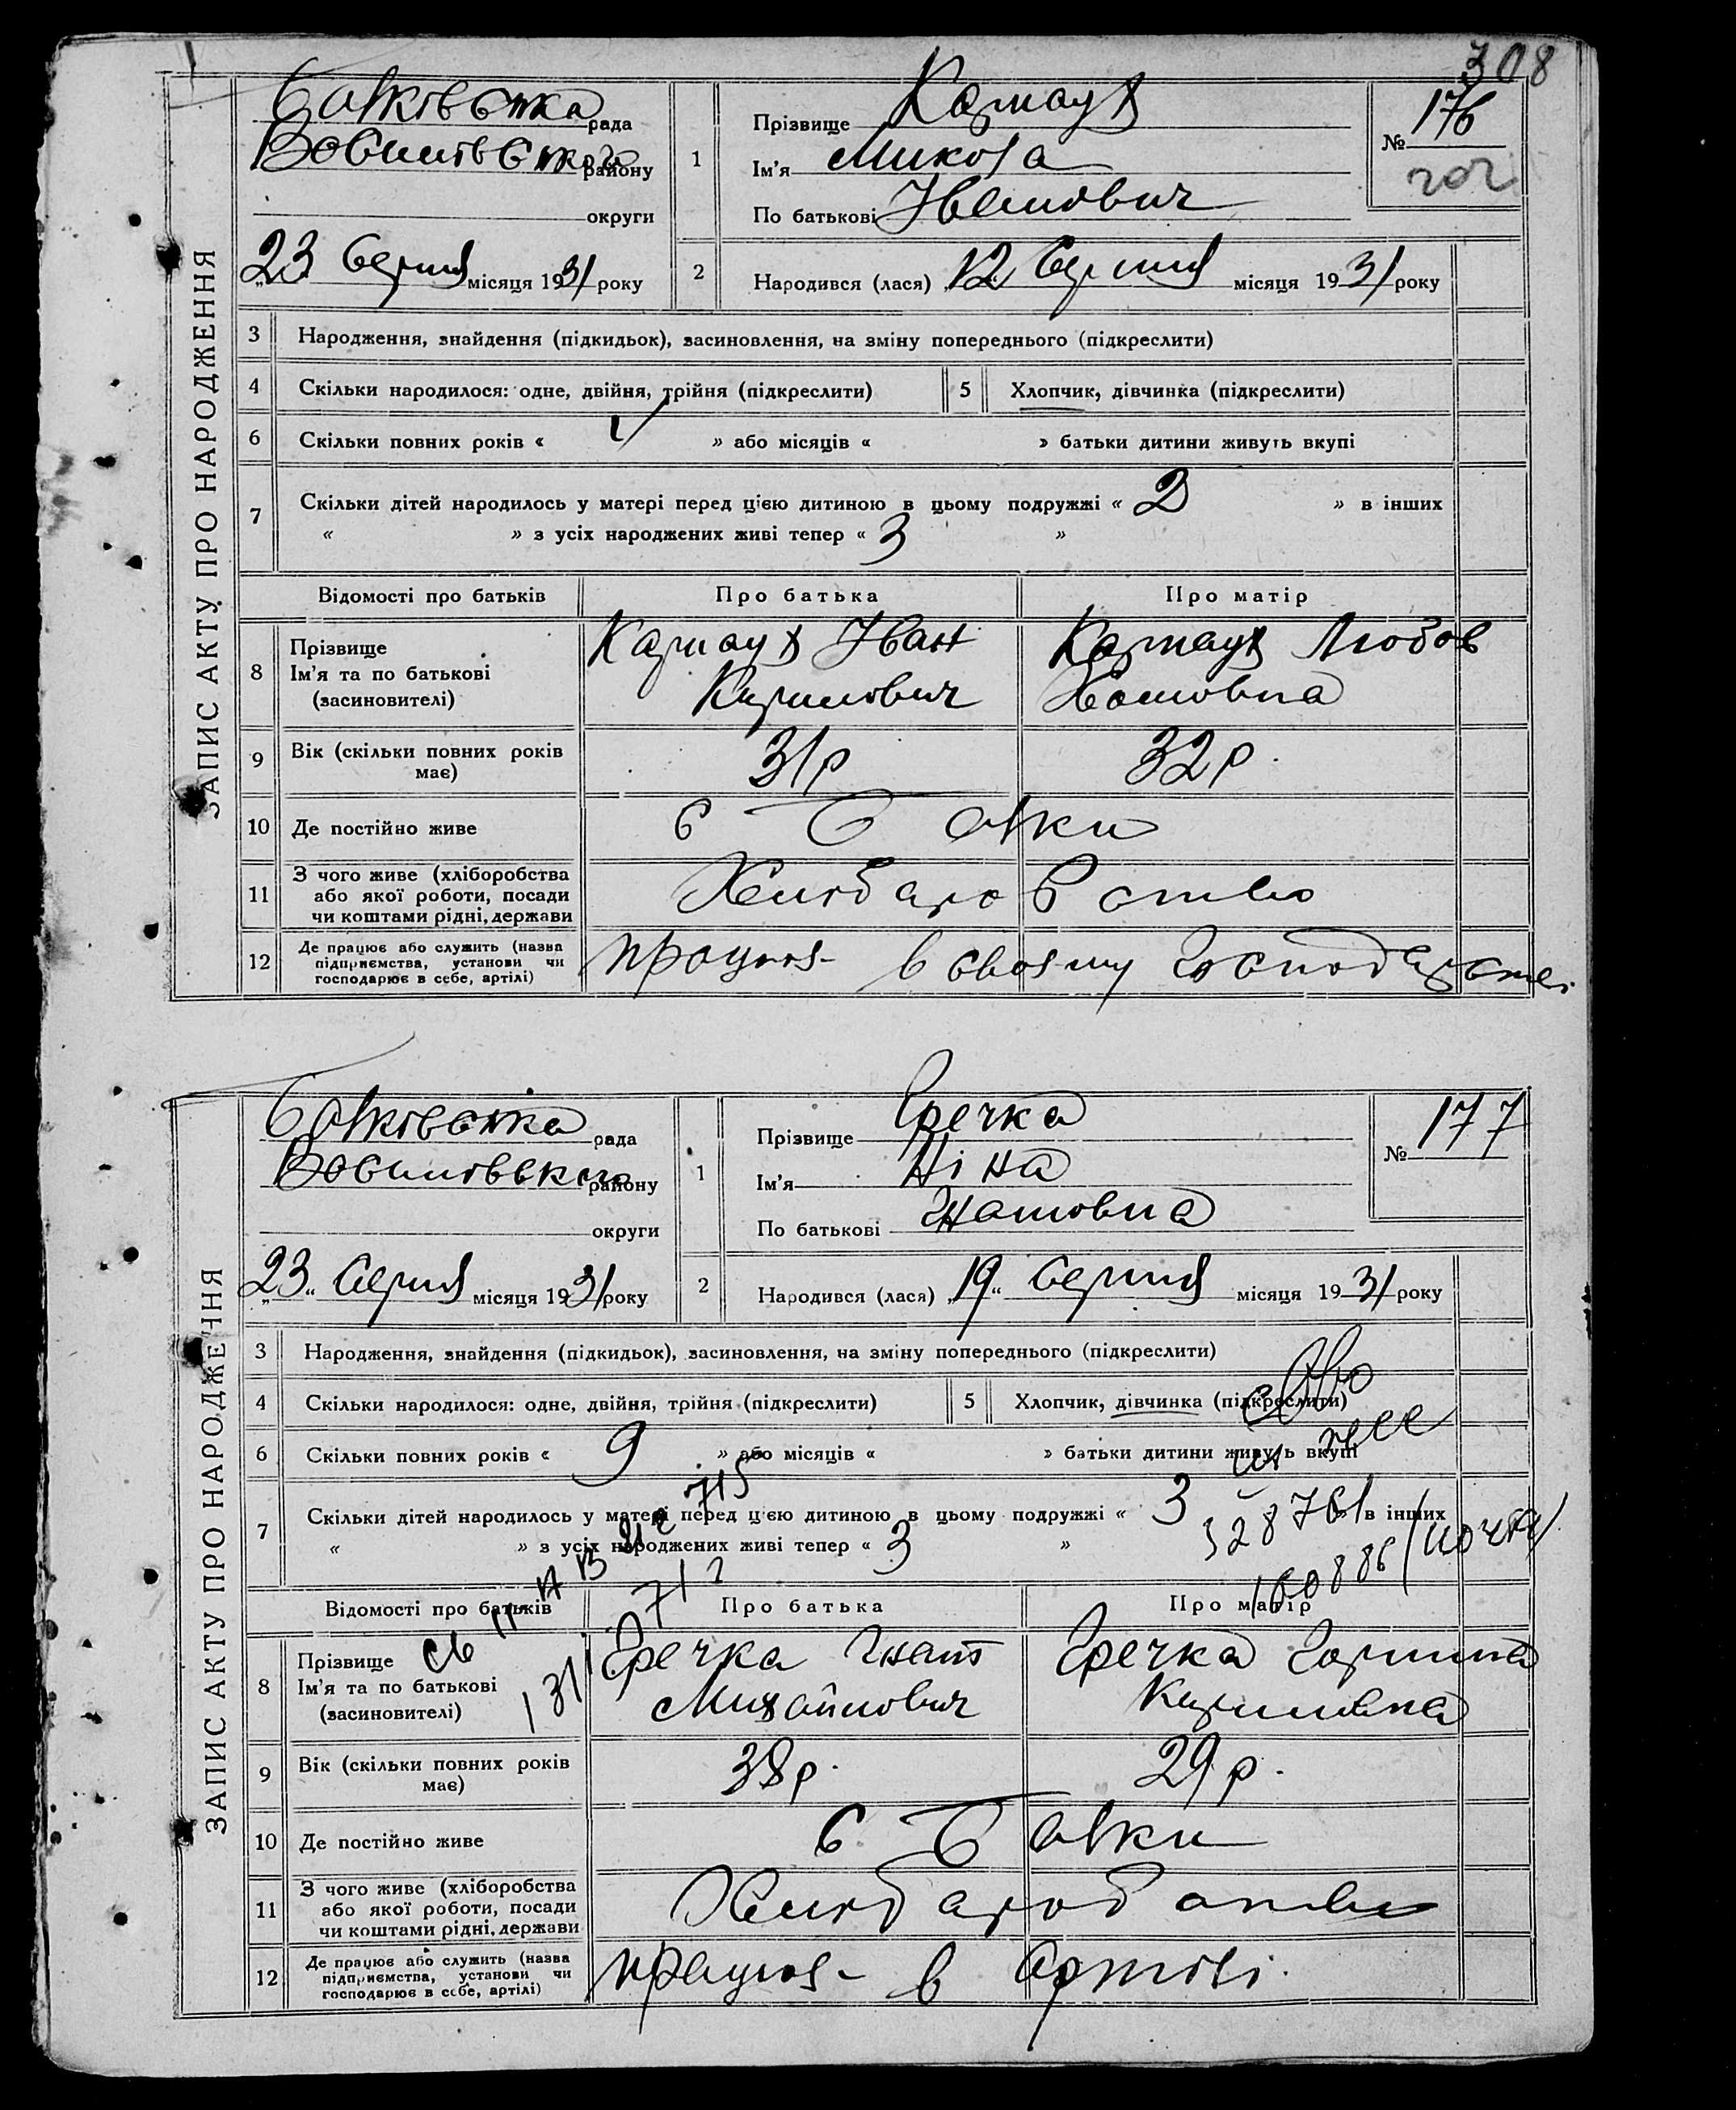 308
ЗАПИС АКТУ ПРО НАРОДЖЕННЯ
рада
району
округи
23 Серпня місяця 1931 року
1
Прізвище Кармаух
Ім'я Микола
По батькові Іванович
№ 176
202
2
Народився (лася) „12 Серпня місяця 1931 року
3 Народження, знайдення (підкидьок), засиновлення, на зміну попереднього (підкреслити)
4 Скільки народилося: одне, двійня, трійня (підкреслити)
5 Хлопчик, дівчинка (підкреслити)
6 Скільки повних років « » або місяців « » батьки дитини живуть вкупі
7 Скільки дітей народилось у матері перед цією дитиною в цьому подружжі « 2 » в інших
« » з усіх народжених живі тепер « 3 »
Відомості про батьків Про батька Про матір
8 Прізвище
Ім'я та по батькові
(засновителі)
Кармаух Іван
Кирилович
Кармаух Любов
9 Вік (скільки повних років
має)
31 р
32 р.
10 Де постійно живе
с Балки
11 З чого живе (хліборобства
або якої роботи, посади
чи коштами рідні, держави
Хлиборобство
12 Де працює або служить (назва
підприємства, установи чи
господарює в себе, артілі)
працює - в своєму господарстві
ЗАПИС АКТУ ПРО НАРОДЖЕННЯ
рада
району
округи
„23„ Серпня місяця 1931 року
1
Прізвище Гречка
Ім'я Ніна
По батькові Гнатовна
№ 177
2
Народився (лася) „19„ Серпня місяця 1931 року
3 Народження, знайдення (підкидьок), засиновлення, на зміну попереднього (підкреслити)
4 Скільки народилося: одне, двійня, трійня (підкреслити)
5 Хлопчик, дівчинка (підкреслити)
6 Скільки повних років « 9 » або місяців « » батьки дитини живуть вкупі
7 Скільки дітей народилось у матері перед цією дитиною в цьому подружжі « 3 » в інших
« » з усіх народжених живі тепер « 3 »
Відомості про батьків Про батька Про матір
8 Прізвище
Ім'я та по батькові
(засиновителі)
Гречка Гнат
Михайлович
Гречка Горпина
Кириловна
9 Вік (скільки повних років
має)
38 р.
29 р.
10 Де постійно живе
с. Балки
11 З чого живе (хліборобства
або якої роботи, посади
чи коштами рідні, держави
Хлиборобство
12 Де працює або служить (назва
підприємства, установи чи
господарює в себе, артілі)
працює - в артілі.